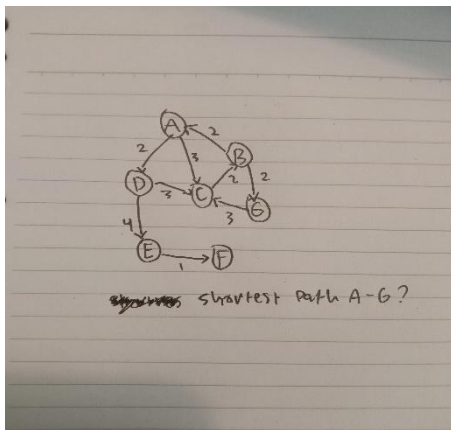 A
2
B
2
3
2
D
3
C
2
G
3
4
E
1
F
shortest path A-G?